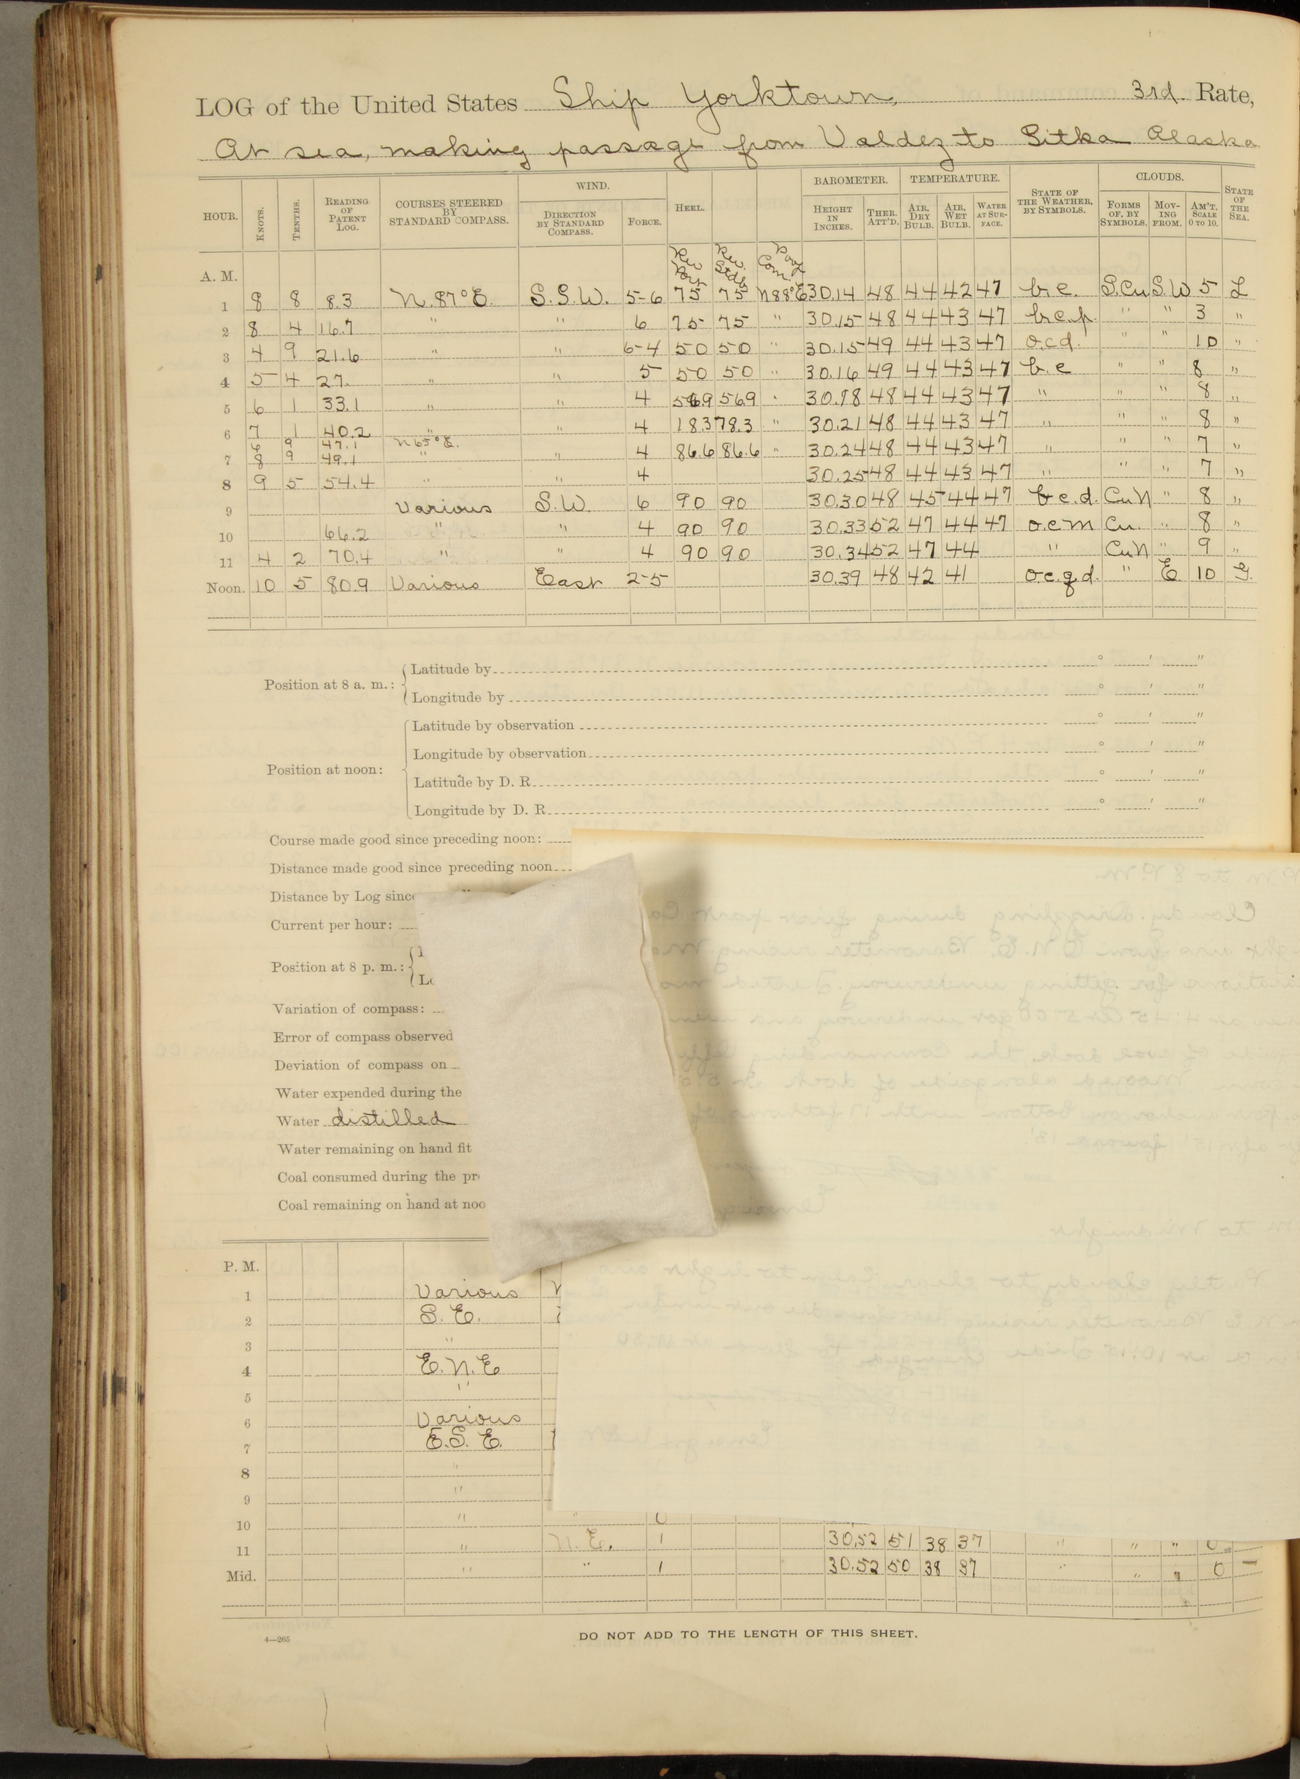 LOG of the United States Ship Yorktown, 3rd. Rate,
At sea, making passage from Valdez to Sitka Alaska
HOUR. KNOTS. TENTHS. READING OF PATENT LOG. COURSES STEERED BY STANDARD COMPASS. WIND. DIRECTION BY STANDARD COMPASS. FORCE. HEEL. BAROMETER. HEIGHT IN INCHES. THER. ATT'D. TEMPERATURE. AIR, DRY BULB. AIR, WET BULB. WATER AT SURFACE. STATE OF THE WEATHER, BY SYMBOLS. CLOUDS. FORMS OF, BY SYMBOLS. MOVING FROM. AM'T, SCALE 0 TO 10. STATE OF THE SEA.
A. M. Rev. Port Rev. Stdb Com.
1 8 8 8.3 N. 87° E. S.S.W. 5-6 75 75 N88°E 30.14 48 44 42 47 b.c. S.Cu S.W 5 L
2 8 4 16.7 " " 6 75 75 " 30.15 48 44 43 47 b.c.p. " " 3 "
3 4 9 21.6 " " 6-4 50 50 " 30.15 49 44 43 47 o.c.d. " " 10 "
4 5 4 27. " " 5 50 50 " 30.16 49 44 43 47 b.c " " 8 "
5 6 1 33.1 " " 4 56.9 56.9 " 30.18 48 44 43 47 " " " 8 "
6 7 1 40.2 " " 4 78.3 " 30.21 48 44 43 47 " " 8 "
6 9 47.1 N 65° E.
7 8 9 49.1 " " 4 86.6 86.6 " 30.24 48 44 43 47 " " " 7 "
8 9 5 54.4 " " 4 30.25 48 44 43 47 " " " 7 "
9 Various S.W. 6 90 90 30.30 48 45 44 47 b.c.d. CuN " 8 "
10 66.2 " " 4 90 90 30.33 52 47 44 47 o.c.m Cu. " 8 "
11 4 2 70.4 " " 4 90 90 30.34 52 47 44 " CuN " 9 "
Noon. 10 5 80.9 Various East 2-5 30.39 48 42 41 o.c.q.d. " E 10 G.
Position at 8 a. m.:
Latitude by ° ′ ″
Longitude by ° ′ ″
Position at noon:
Latitude by observation ° ′ ″
Longitude by observation ° ′ ″
Latitude by D. R. ° ′ ″
Longitude by D. R. ° ′ ″
Course made good since preceding noon:
Distance made good since preceding noon
Distance by Log since
Current per hour:
Position at 8 p. m.:
Variation of compass:
Error of compass observed
Deviation of compass on
Water expended during the
Water distilled
Water remaining on hand fit
Coal consumed during the pr
Coal remaining on hand at noo
P. M.
1 Various
2 S. E.
3 "
4 E.N.E
5 "
6 Various
7 E.S.E.
8 "
9 "
10 "
11 " N.E. 1 30.52 51 38 37 " " " 0 -
Mid. " " 1 30.52 50 38 37 " " " 0 -
4—265
DO NOT ADD TO THE LENGTH OF THIS SHEET.